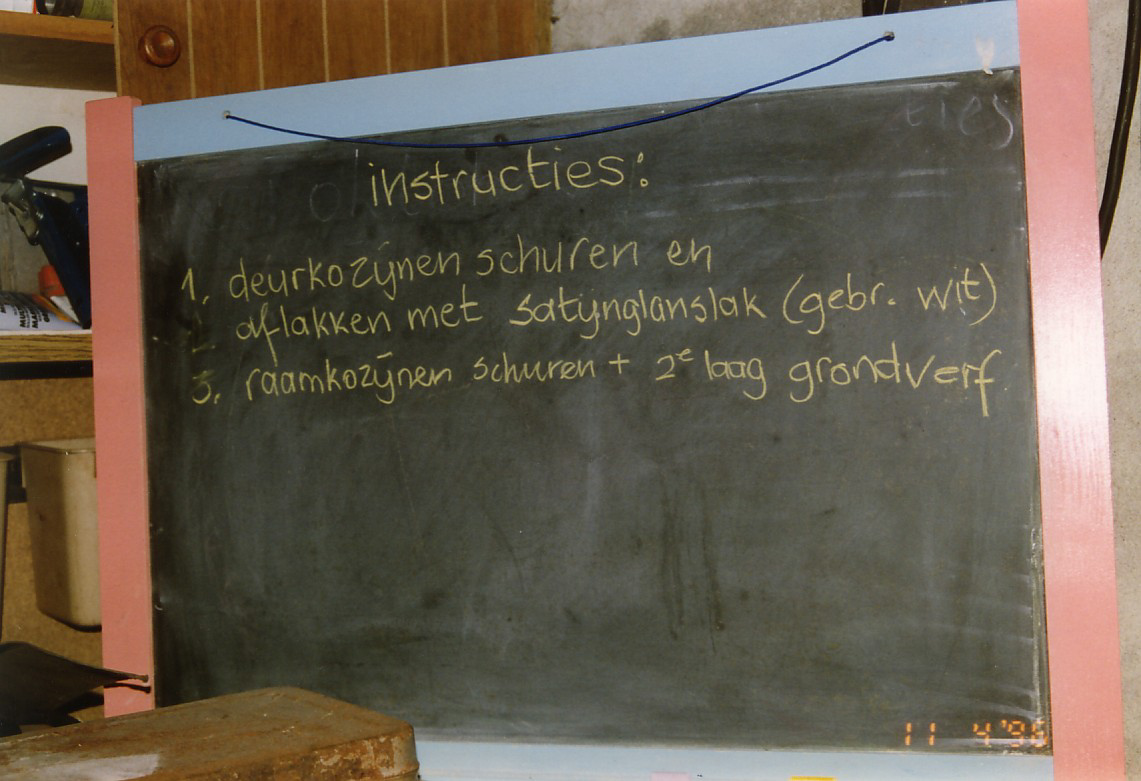 ties
instructies:
1. deurkozijnen schuren en
aflakken met satijnglanslak (gebr. wit)
3. raamkozijnen schuren + 2e laag grondverf
11 4'96